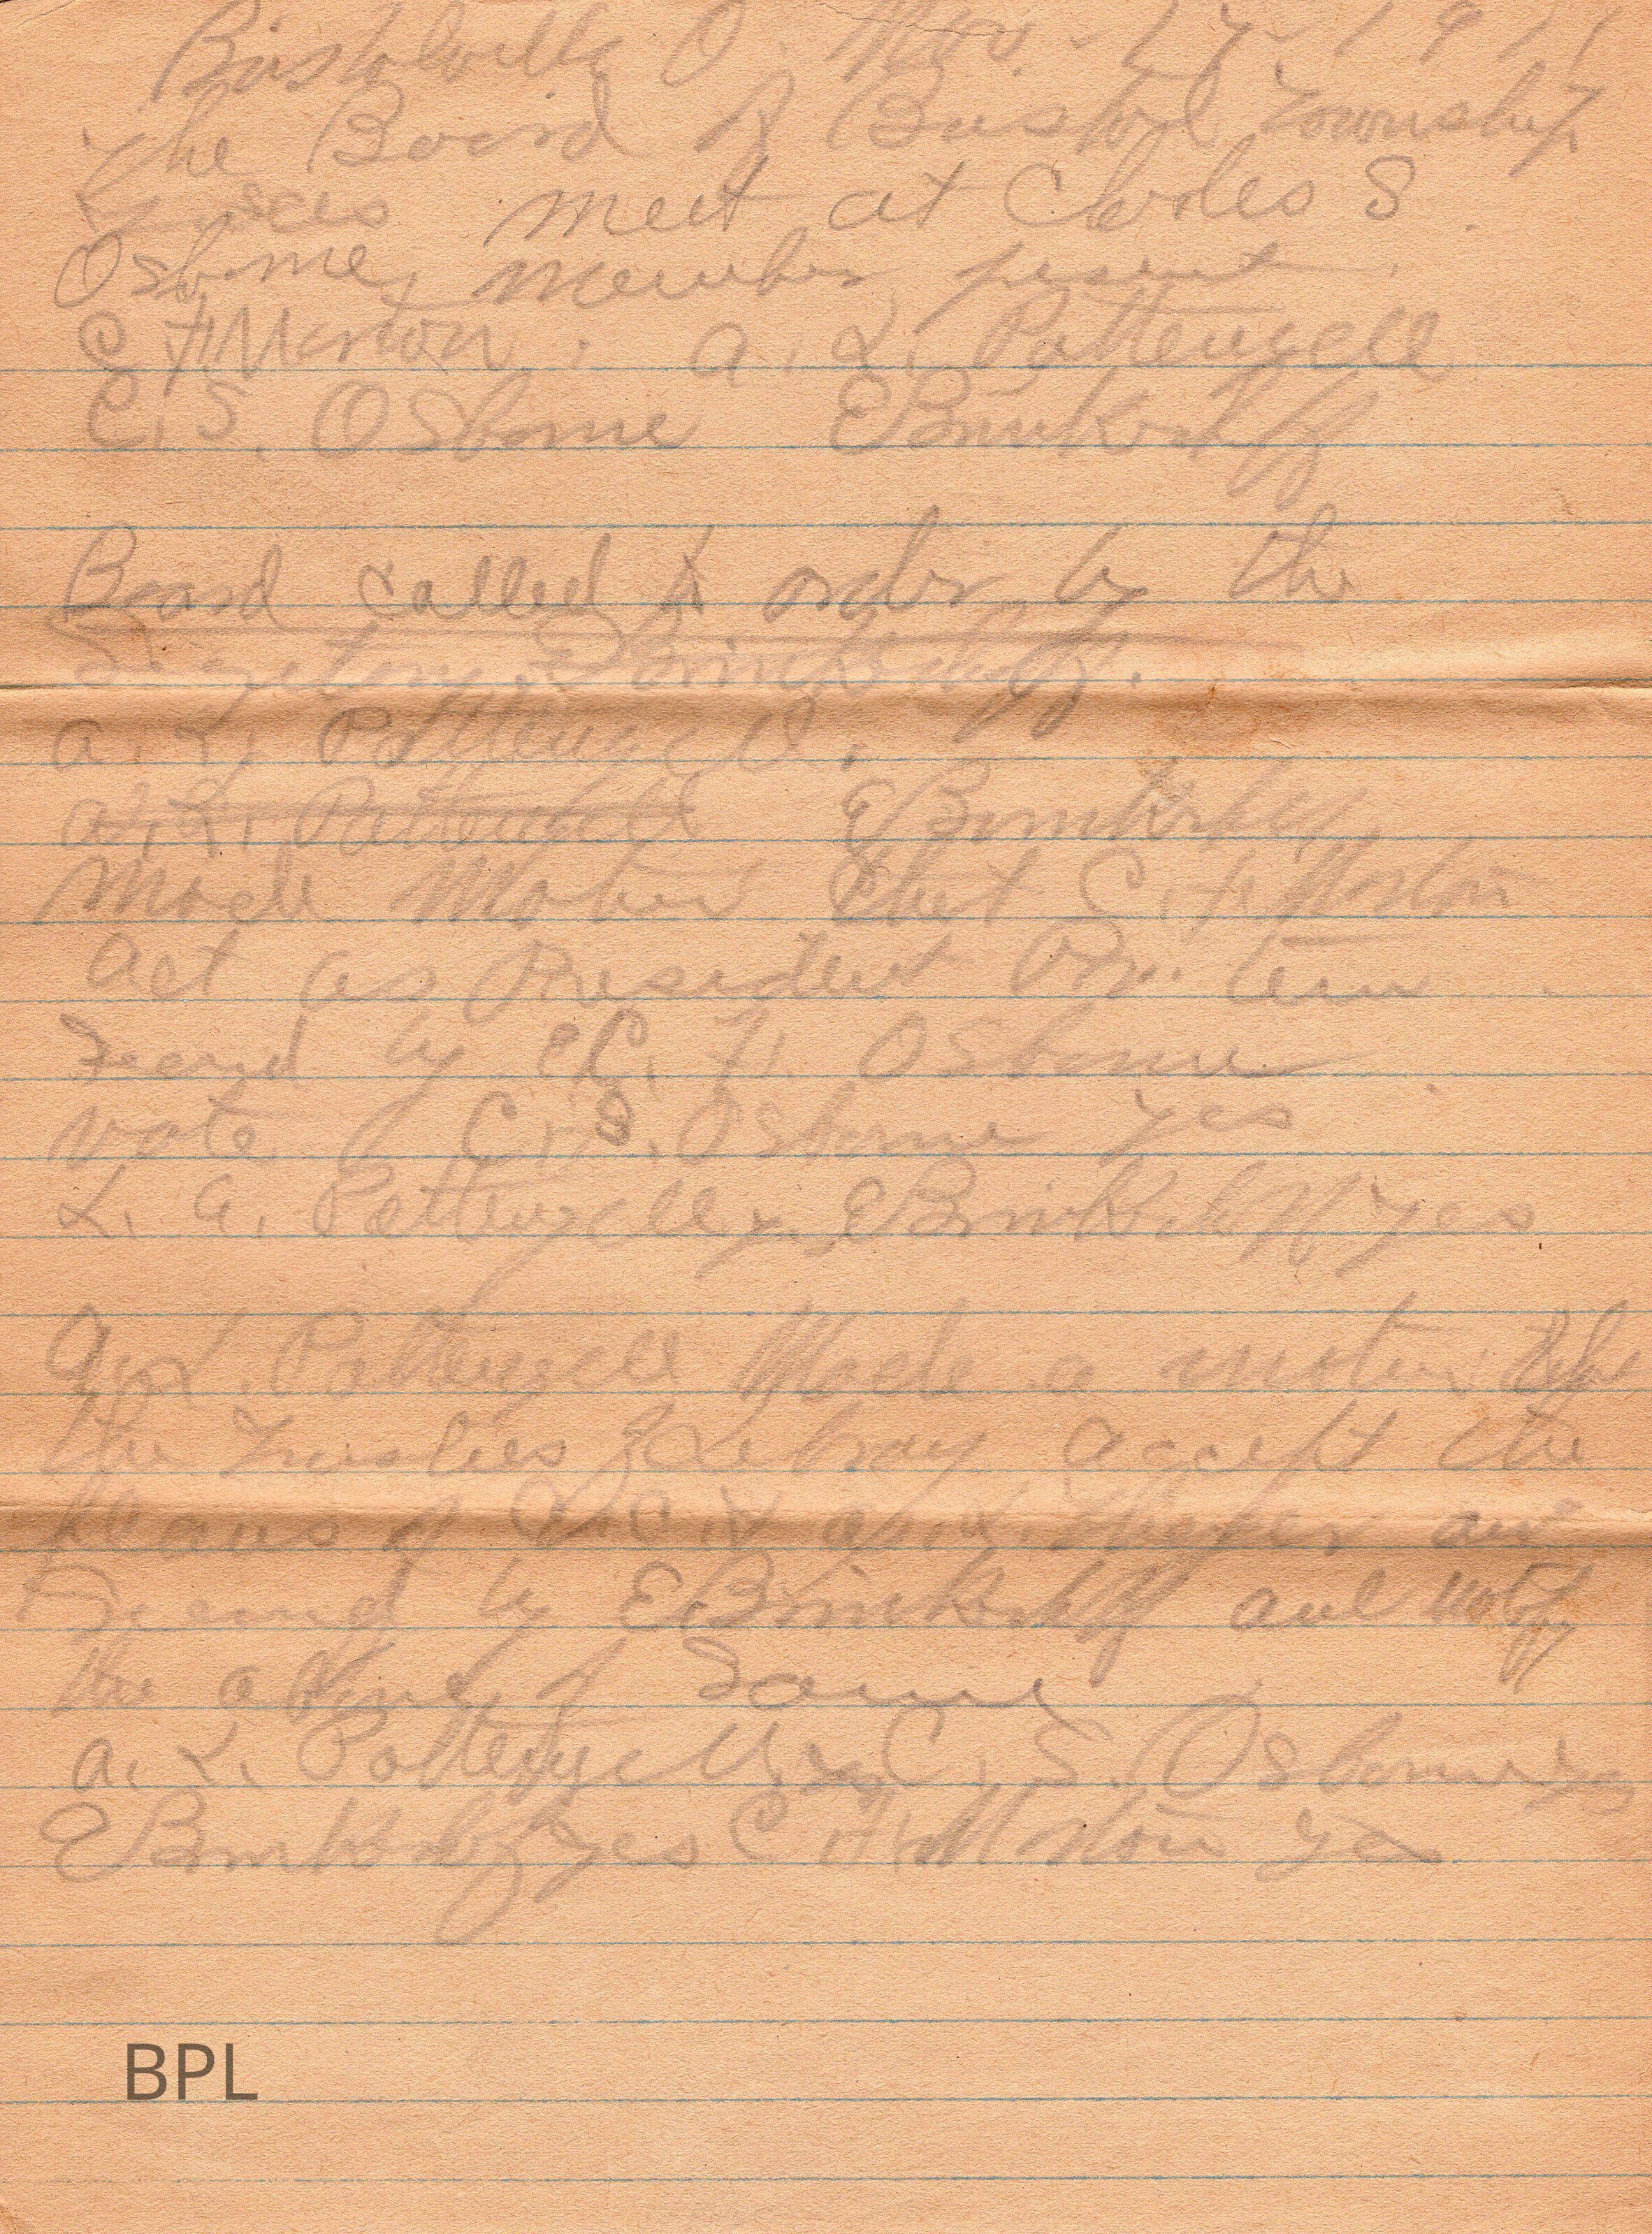 Bristolville O. Nov. 17 - 1911
The Board of Bristol Township
meet at Charles S.
Osborne, member present.
C. H. Morton. A. L. Pattengell
C. S. Osborne E Brinkerhoff
Board called to order by the
E Brinkerhoff.
A. L. Pattengell.
A. L. Pattengell E Brinkerhoff
Made Motion that C. H. Morton
act as President Pro. tem
by C. H. Osborne
vote of C. S. Osborne yes
L. A. Pattengell yes E Brinkerhoff yes
A. L. Pattengell Made a motion
the Trustees of Library accept the
plans of and
by E Brinkerhoff and notify
the of Same
A. L. Pattengell yes C. S. Osborne yes
E Brinkerhoff yes C. H. Morton yes
BPL